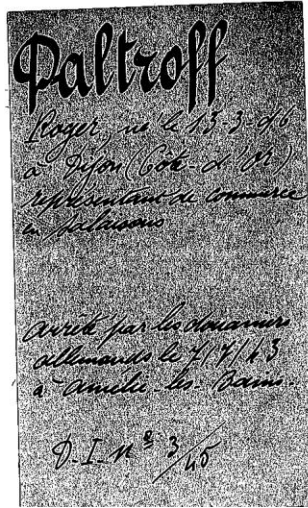 Paltroff
Roger, né le 13-3-06
à Dijon (Côte-d'Or)
représentant de commerce
en salaisons
arrêté par les douaniers
allemands le 7/7/43
à Amélie-les-Bains.
D.I. N° 3/45